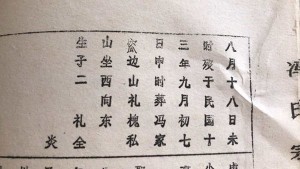 冯氏
八月十八日未
时殁于民国十
三年九月初七
日申时葬冯家
边山礼槐私
山坐西向东
生子二礼全
炎